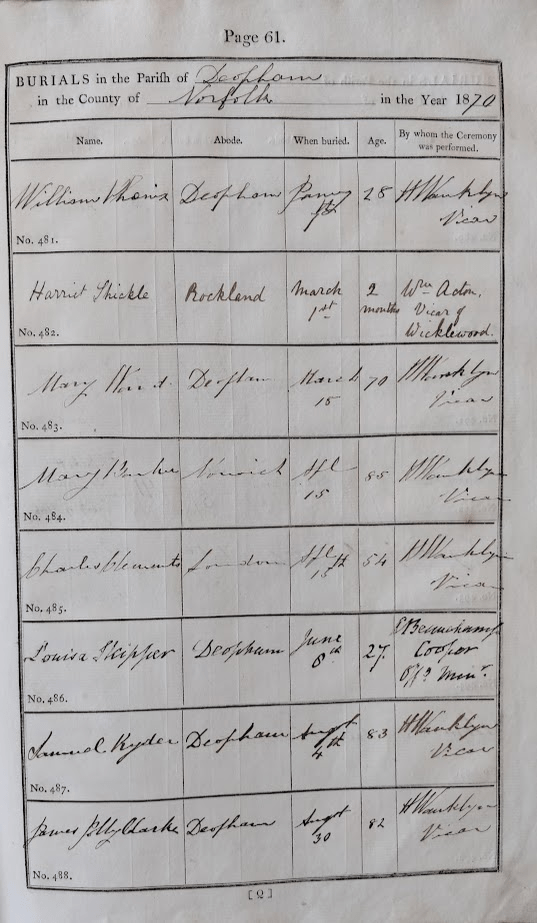 Page 61.
BURIALS in the Parish of Deopham
in the County of Norfolk in the Year 1870
Name. Abode. When buried. Age. By whom the Ceremony was performed.
William Deopham 28 H Wanklyn
Vicar
No. 481.
Harriet Shickle Rockland March 2 Wm Acton,
1st months Vicar of
Wicklewood.
No. 482.
Mary Deopham March 70 H Wanklyn
15 Vicar
No. 483.
Mary Norwich Apl 85 H Wanklyn
15 Vicar
No. 484.
Charles Clements London Apl 54 H Wanklyn
18th Vicar
No. 485.
Louisa Skipper Deopham June 27. Beauchamp
8th Cooper
Offg Minr.
No. 486.
Samuel Ryder Deopham Augst 83 H Wanklyn
4th Vicar
No. 487.
James Jelly Clarke Deopham Augst 82 H Wanklyn
30 Vicar
No. 488.
[ Q ]